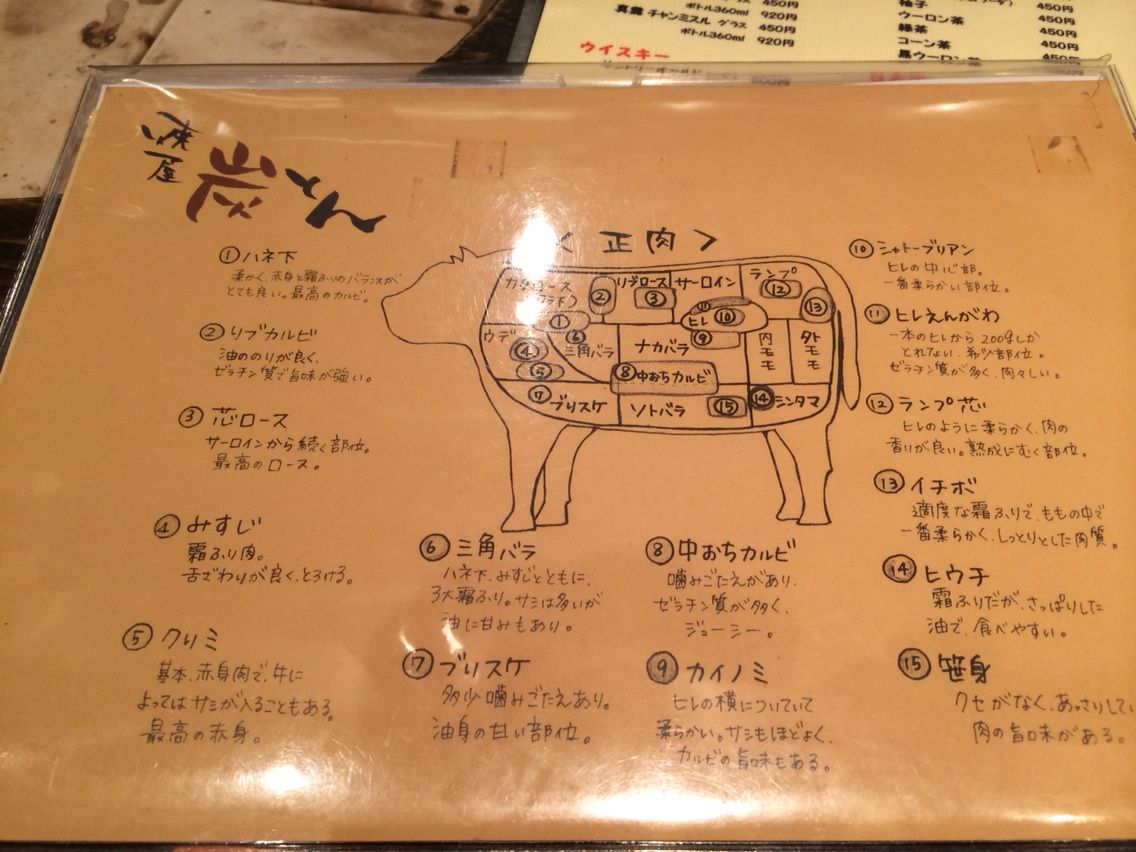 ボトル360ml 920円
真露 チャンミスル グラス 450円
ボトル360ml 920円
ウイスキー
柚子 450円
ウーロン茶 450円
緑茶 450円
コーン茶 450円
黒ウーロン茶 450円
炭とん
＜正肉＞
① ハネ下
柔かく、赤身と霜ふりのバランスが
とても良い。最高のカルビ。
② リブカルビ
油ののりが良く、
ゼラチン質で旨味が強い。
③ 芯ロース
サーロインから続く部位。
最高のロース。
④ みすじ
霜ふり肉。
舌ざわりが良く、とろける。
⑤ クリミ
基本、赤身肉で、牛に
よってはサシが入ることもある。
最高の赤身。
リブロース
サーロイン
ランプ
②
③
⑫
⑬
①
⑪
ヒレ
⑩
ウデ
④
⑥
三角バラ
ナカバラ
⑨
内モモ
外モモ
⑤
⑧ 中おちカルビ
⑦ ブリスケ
ソトバラ
⑮
⑭ シンタマ
⑥ 三角バラ
ハネ下、みすじとともに、
3大霜ふり。サシは多いが
油に甘みもあり。
⑦ ブリスケ
多少噛みごたえあり。
油身の甘い部位。
⑧ 中おちカルビ
噛みごたえがあり、
ゼラチン質が多く、
ジューシー。
⑨ カイノミ
ヒレの横についていて
柔らかい。サシもほどよく、
カルビの旨味もある。
⑩ シャトーブリアン
ヒレの中心部。
一番柔らかい部位。
⑪ ヒレえんがわ
一本のヒレから200gしか
とれない、希少部位。
ゼラチン質が多く、肉々しい。
⑫ ランプ芯
ヒレのように柔らかく、肉の
香りが良い。熟成にむく部位。
⑬ イチボ
適度な霜ふりで、ももの中で
一番柔らかく、しっとりとした肉質。
⑭ ヒウチ
霜ふりだが、さっぱりした
油で、食べやすい。
⑮ 笹身
クセがなく、あっさりしてい
肉の旨味がある。